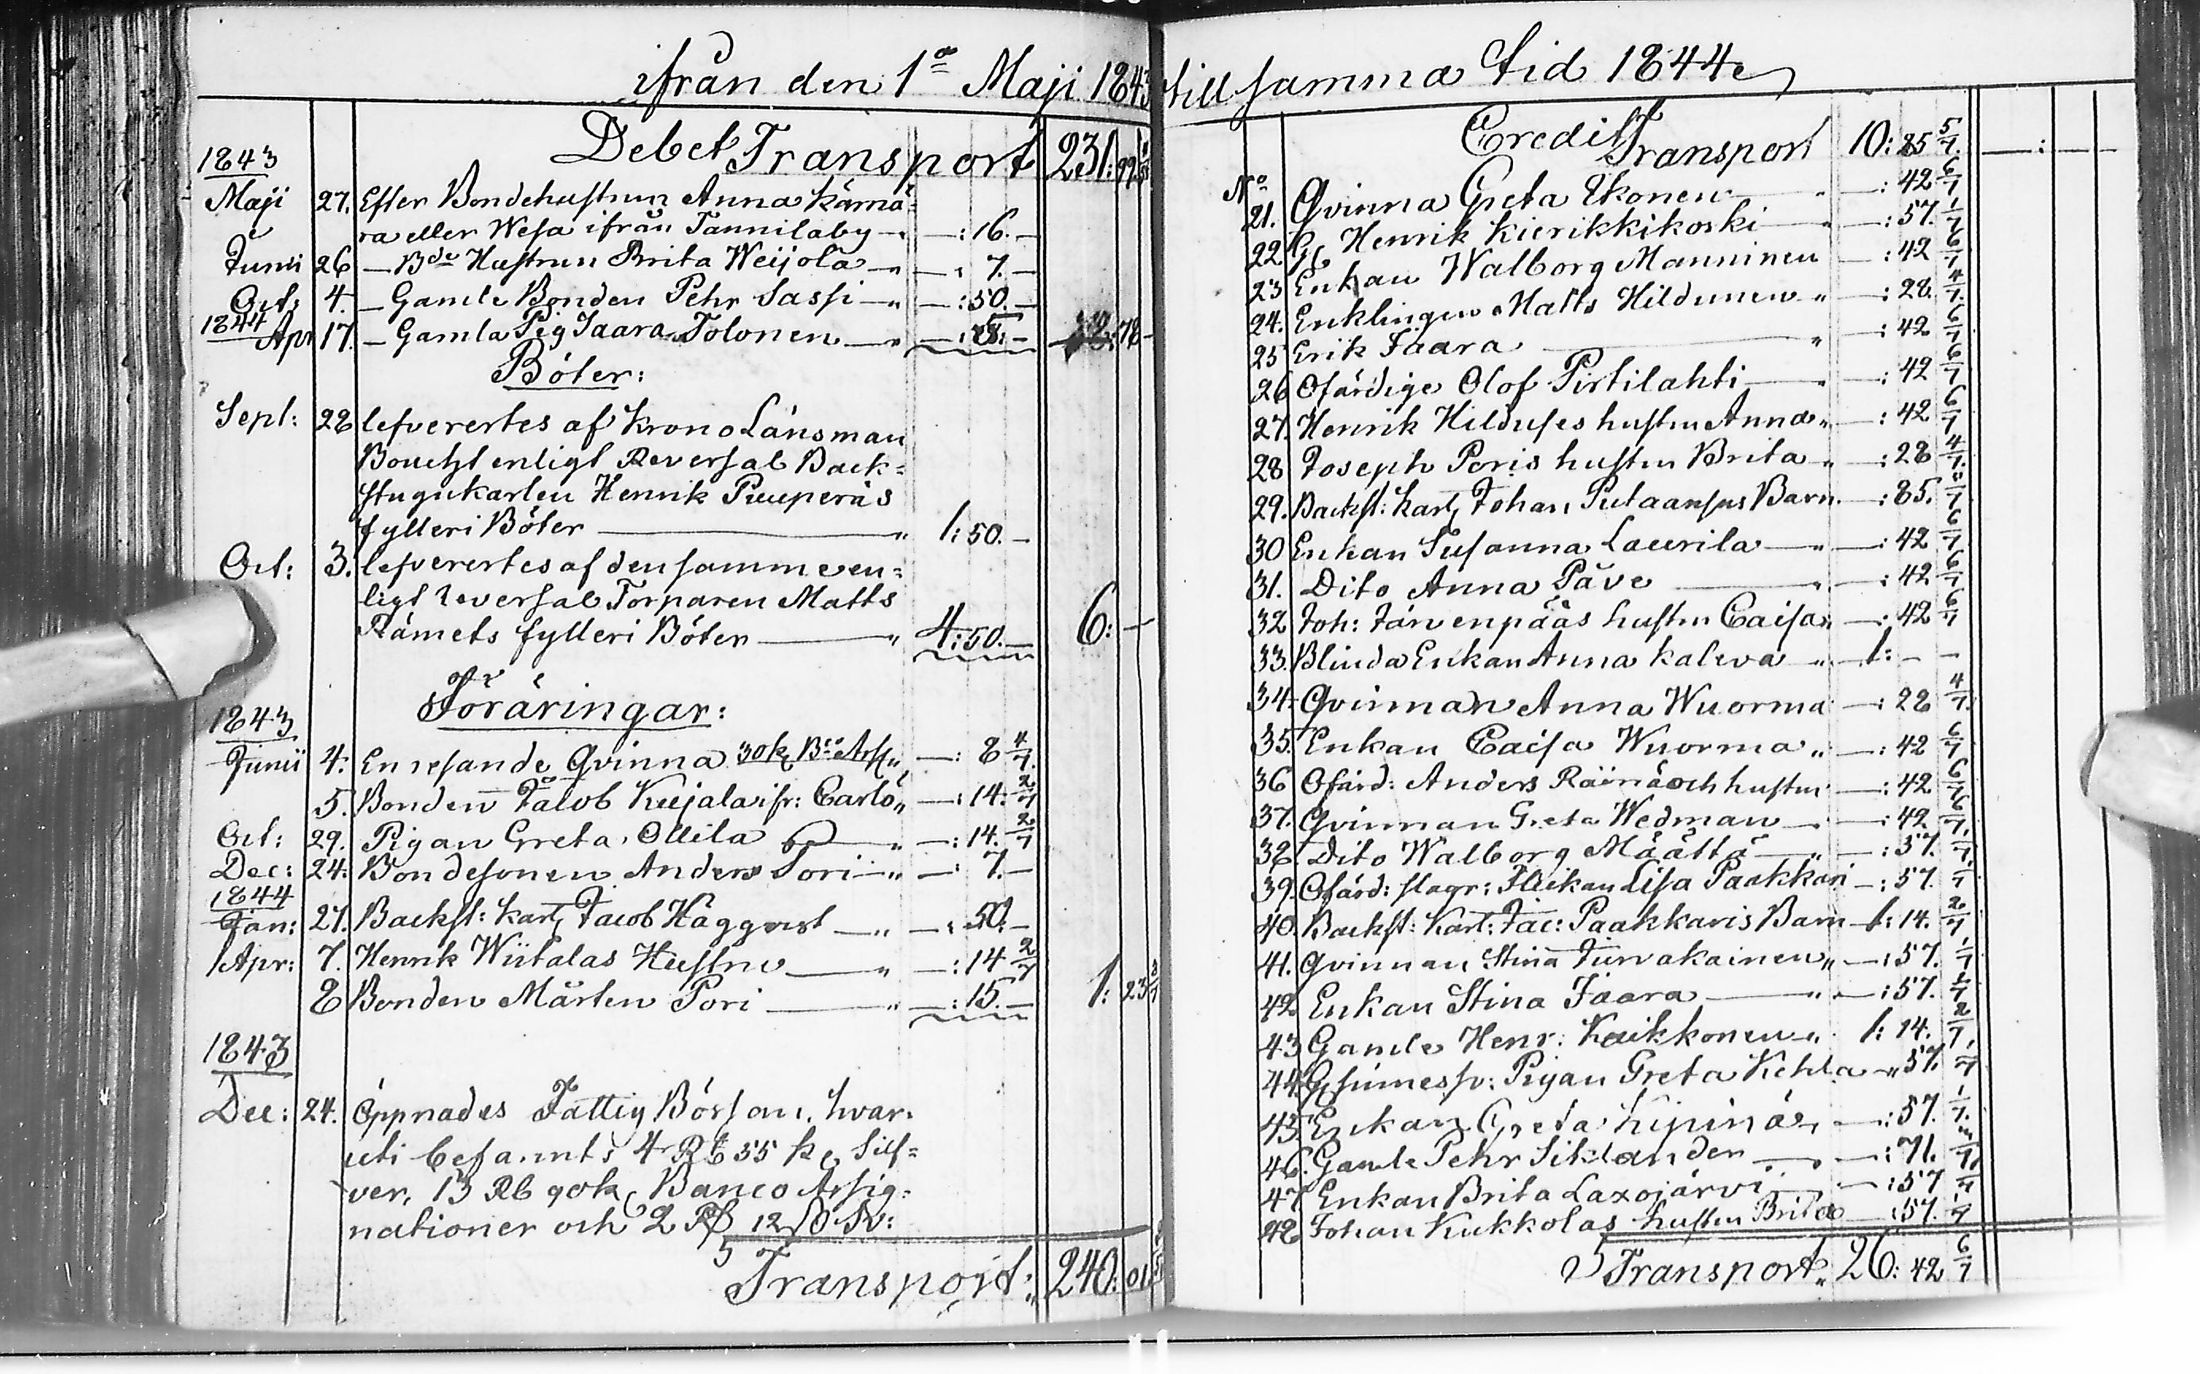 ifrån den 1º Maji 1843
Debet Transport 231: 99
1843
Maji 27. Efter Bondehustrun Anna Kärnä=
ra eller Wesa ifrån Tannilaby — —: 16. —
Junii 26 — Bde Hustrun Brita Weijola — " — : 7. —
Oct: 4. — Gamle Bonden Pehr Sassi — " — : 50. —
1844
Apr 17. — Gamla Pig Jaara Tolonen — " — : 5. —
Böter:
Sept: 28 lefverertes af Krono Länsman
Boucht enligt Reversal Back=
stugukarlen Henrik Puuperäs
fylleri Böter — " 1: 50. —
Oct: 3. lefverertes af den samme en=
ligt reversal Torparen Matts
Rämets fylleri Böter — " 4: 50. — 6: —
Föräringar:
1843
Junii 4. En resande Qvinna 30 k Bco Ass — : 8 4/7.
5. Bonden Jacob Kujala ifr: Carlö " — : 14. 2/7
Oct: 29. Pigan Greta Ollila — " — : 14. 2/7
Dec: 24. Bondesonen Anders Pori — " — : 7. —
1844
Jan: 27. Backst: karl Jacob Häggqvist — " — : 50. —
Apr: 7. Henrik Wiitalas Hustru — " — : 14 2/7
8 Bonden Mårten Pori — " — : 15. — 1: 23
1843
Dec: 24. Öppnades Fattig Börsan, hvar=
uti befannts 4 Rb 55 k Silf=
ver, 13 Rb 90 k Banco Assig=
nationer och 2 Rs 12 s Sv:
Transport: 240: 01
till samma tid 1844
Credit
Transport 10: 85 5/7.
No 21. Qvinna Greta Ikonen — " — : 42 6/7
22 Gl Henrik Kierikkikoski — " — : 57. 1/7
23 Enkan Walborg Manninen — : 42 6/7
24. Enklingen Matts Hildunen " — : 28. 4/7.
25 Erik Jaara — " — : 42 6/7
26 Ofärdige Olof Pirtilahti — " — : 42 6/7
27. Henrik Hilduses hustru Anna " — : 42 6/7
28 Joseph Poris hustru Brita " — : 28 4/7.
29. Backst: karl Johan Putaansus Barn — : 85. 5/7
30 Enkan Susanna Laurila — " — : 42 6/7
31. Dito Anna Päve — " — : 42 6/7
32 Joh: Järvenpääs hustru Caisa " — : 42 6/7
33. Blinda Enkan Anna Kaleva " 1: — —
34. Qvinnan Anna Wuorma — : 28 4/7.
35. Enkan Caisa Wuorma " — : 42 6/7
36 Ofärd: Anders Räinä och hustru — : 42 6/7
37. Qvinnan Greta Wedman — — : 42. 6/7.
38. Dito Walborg Määttä — " — : 57. 1/7
39. Ofärd: Lisa Paakkari — : 57. 1/7
40. Backst: Karl: Jac: Paakkaris Barn 1: 14. 2/7
41. Qvinnan Stina Turvakainen " — : 57. 1/7
42 Enkan Stina Jaara — " — : 57. 1/7
43 Gamle Henr: Kaikkonen " 1: 14. 2/7.
44. Pigan Greta Kehla " 57. 1/7
45. Enkan Greta Kipinä — : 57. 1/7.
46. Gamle Pehr Siklander — — : 71. 3/7.
47 Enkan Brita Laxojärvi — : 57 1/7
48 Johan Kukkolas hustru Brita : 57. 1/7
Transport " 26: 42 6/7